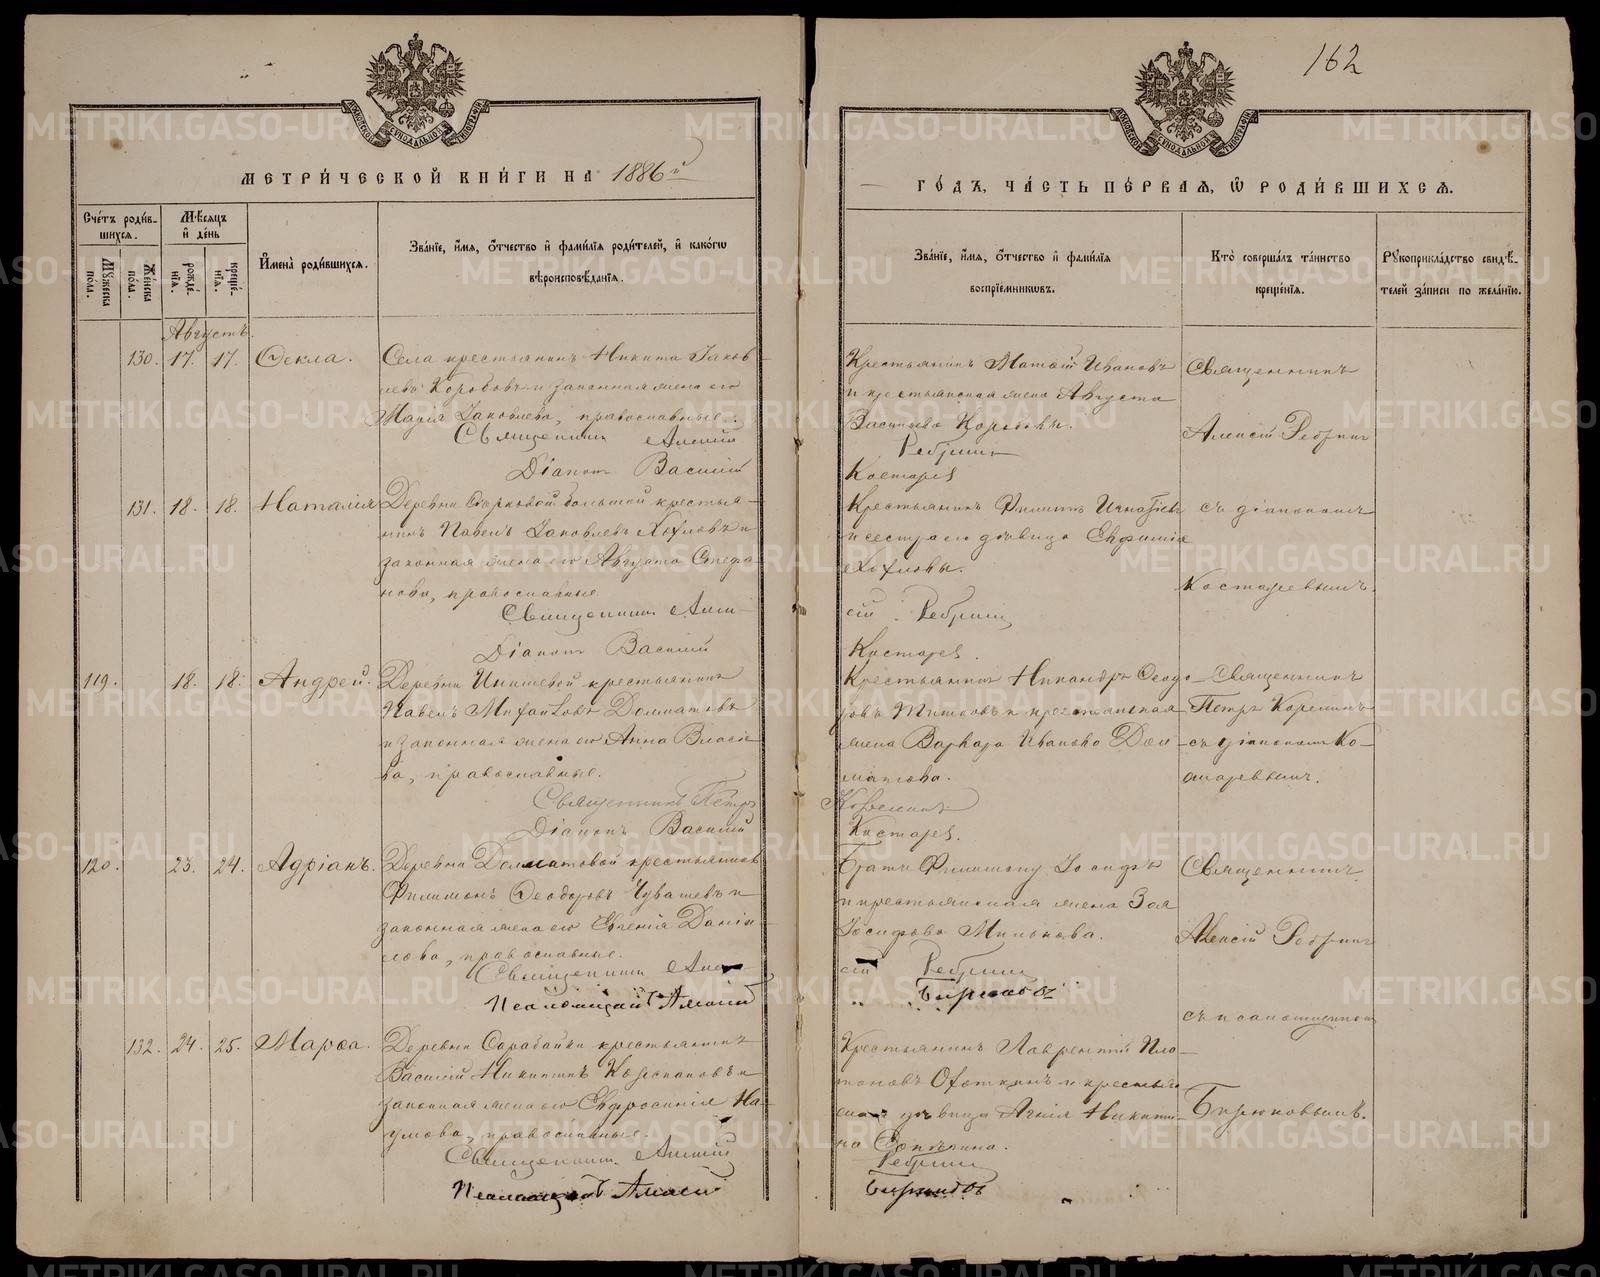 162
МЕТРИ́ЧЕСКОЙ КНИ́ГИ НА 1886й
ГО́ДЪ, ЧА́СТЬ ПЕ́РВАЯ, Ѽ РОДИ́ВШИХСЯ.
Сче́тъ роди́в-
шихся.
Му́жеска пола.
Же́нска пола.
Мѣсяцъ
и де́нь
рожде́нїя.
креще́нїя.
Имена̀ роди́вшихся.
Зва́нїе, и́мя, ѻ҆́тчество и фами́лїя роди́телей, и како́гѡ
вѣроисповѣ́данїя.
Зва́нїе, и́мя, ѻ҆́тчество и фами́лїя
воспрїе́мникѡвъ.
Кто̀ соверша́лъ та́инство
креще́нїя.
Рꙋкоприкла́дство свидѣ́-
телей за́писи по жела́нїю.
Августъ.
130. 17. 17. Ѳекла.
Села крестьянинъ Никита Іаков-
левъ Коробовъ и законная жена его
Марія Іаковлева, православные.
Священникъ Алексій
Діаконъ Василій
Крестьянинъ Матвій Ивановъ
и крестьянская жена Августа
Васильева Коробовы.
Ребринъ
Костаревъ
Священникъ
Алексій Ребринъ
131. 18. 18. Наталія
Деревни большой крестья-
нинъ Павелъ Іаковлевъ Хохловъ и
законная жена его Августа Стефа-
нова, православные
Священникъ Алек-
Діаконъ Василій
Крестьянинъ Филиппъ Игнатіевъ
и сестра его дѣвица Евфимія
Хохловы.
сій Ребринъ
Костаревъ.
съ діакономъ
Костаревымъ.
119. 18. 18. Андрей.
Деревни крестьянинъ
Павелъ Михайловъ Долматовъ
и законная жена его Анна Власіе-
ва, православные.
Священникъ Петръ
Діаконъ Василій
Крестьянинъ Никандръ Ѳеодо-
ровъ и крестьянская
жена Варвара Иванова Дол-
матова.
Корелинъ
Костаревъ.
Священникъ
Петръ Корелинъ
съ діакономъ Ко-
старевымъ.
120. 23. 24. Адріанъ.
Деревни Долматовой крестьянинъ
Филимонъ Ѳеодоровъ Чувашевъ и
законная жена его Евгенія Даніи-
лова, православные.
Священникъ Алек-
Псаломщикъ Алексій
Братъ Филимону Іосифъ
и крестьянская жена Зоя
Іосифова Милькова.
сій Ребринъ
Бирюковъ
Священникъ
Алексій Ребринъ
съ псаломщикомъ
132. 24. 25. Марѳа.
Деревни Сарабайки крестьянинъ
Василій Никитинъ и
законная жена его Евфросинія На-
умова, православные.
Священникъ Алексій
Псаломщикъ Алексій
Крестьянинъ Лаврентій Пла-
тоновъ Охоткинъ и крестьян-
ская дѣвица Агнія Никити-
на
Ребринъ
Бирюковъ
Бирюковымъ.